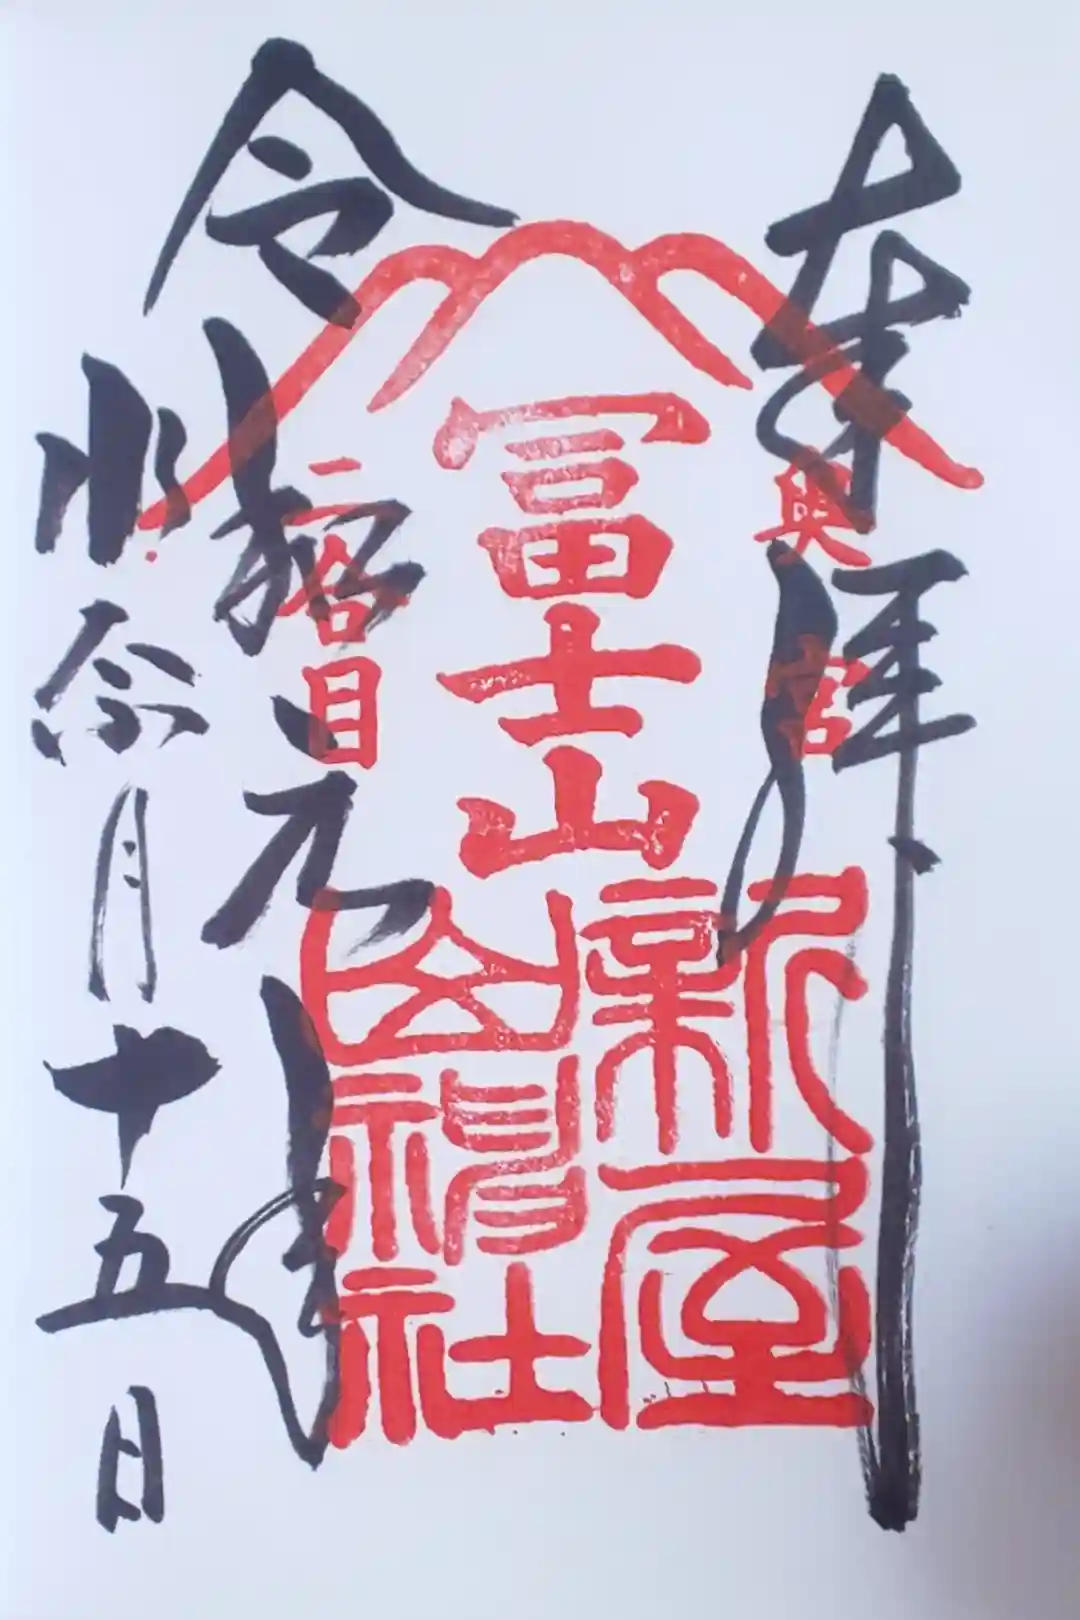 奉拝
奥宮
冨士山
新屋
山神社
二合目
令和元年
水無月十五日